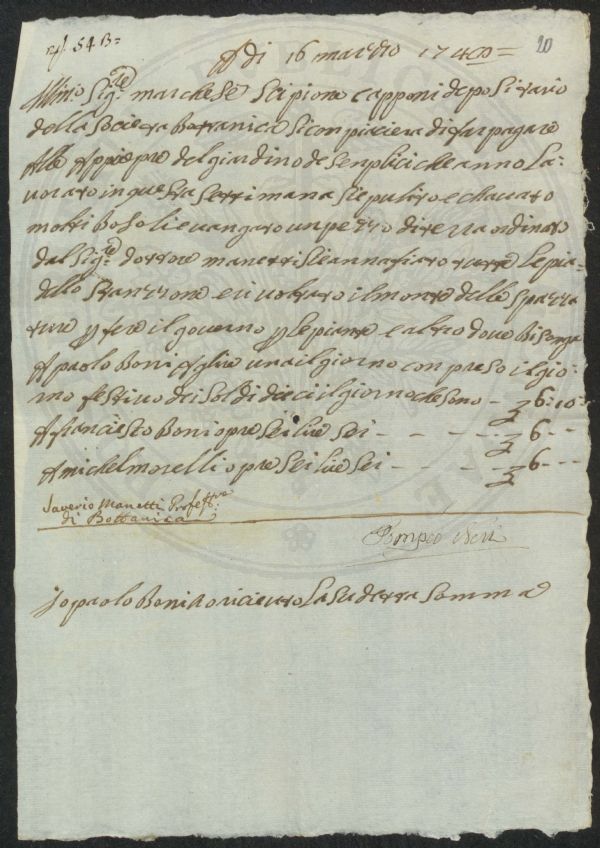 54 B=
20
A di 16 marzo 1740=
Illmo Sig.re marchese Scipione Capponi depositario
della Società Botanica si conpiacierà di far pagare
Alle Appie opre del giardino de Senplici che anno La:
vorato in questa settimana Si è pulito e chavato
molti Bosoli e vangato un pezzo di terra ordinato
dal Sig.re dottore manetti Si è annafiato tutte le pia:
dello Stanzione e rivoltato il monte delle Spazza
ture p fare il governo p le piante e altro dove Bisongia
A paolo Boni A lire una il giorno con preso il gio:
rno festivo dei Soldi dieci il giorno che sono - 6:10:
A franciesco Boni opre Sei lire Sei - - - 6 - -
A michel morelli opre Sei lire Sei - - - 6 - -
Saverio Manetti Profess.re
di Bottanica
Pompeo Neri
Io paolo Boni ò ricieuto La Sudetta Somma